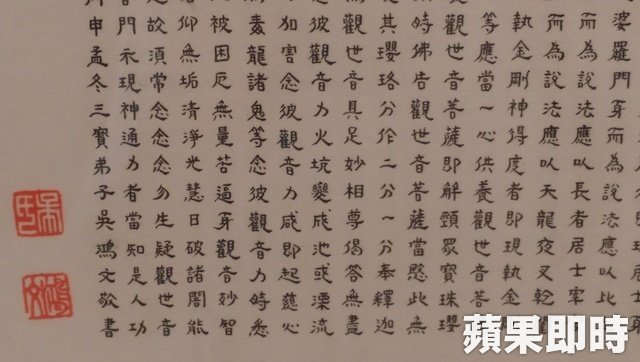 婆羅門身而為說法應以比
而為說法應以長者居士宰
而為說法應以天龍夜叉乾
執金剛神得度者即現執金
等應當一心供養觀世音菩
觀世音菩薩即解頸眾寶珠瓔
時佛告觀世音菩薩當愍此無
其瓔珞分作二分一分奉釋迦
觀世音具足妙相尊偈答無盡
彼觀音力火坑變成池或漂流
加害念彼觀音力咸即起慈心
毒龍諸鬼等念彼觀音力時悉
被困厄無量苦逼身觀音妙智
仰無垢清淨光慧日破諸闇能
故須常念念念勿生疑觀世音
門示現神通力者當知是人功
申孟冬三寶弟子吳鴻文敬書
吳氏
鴻文
蘋果即時